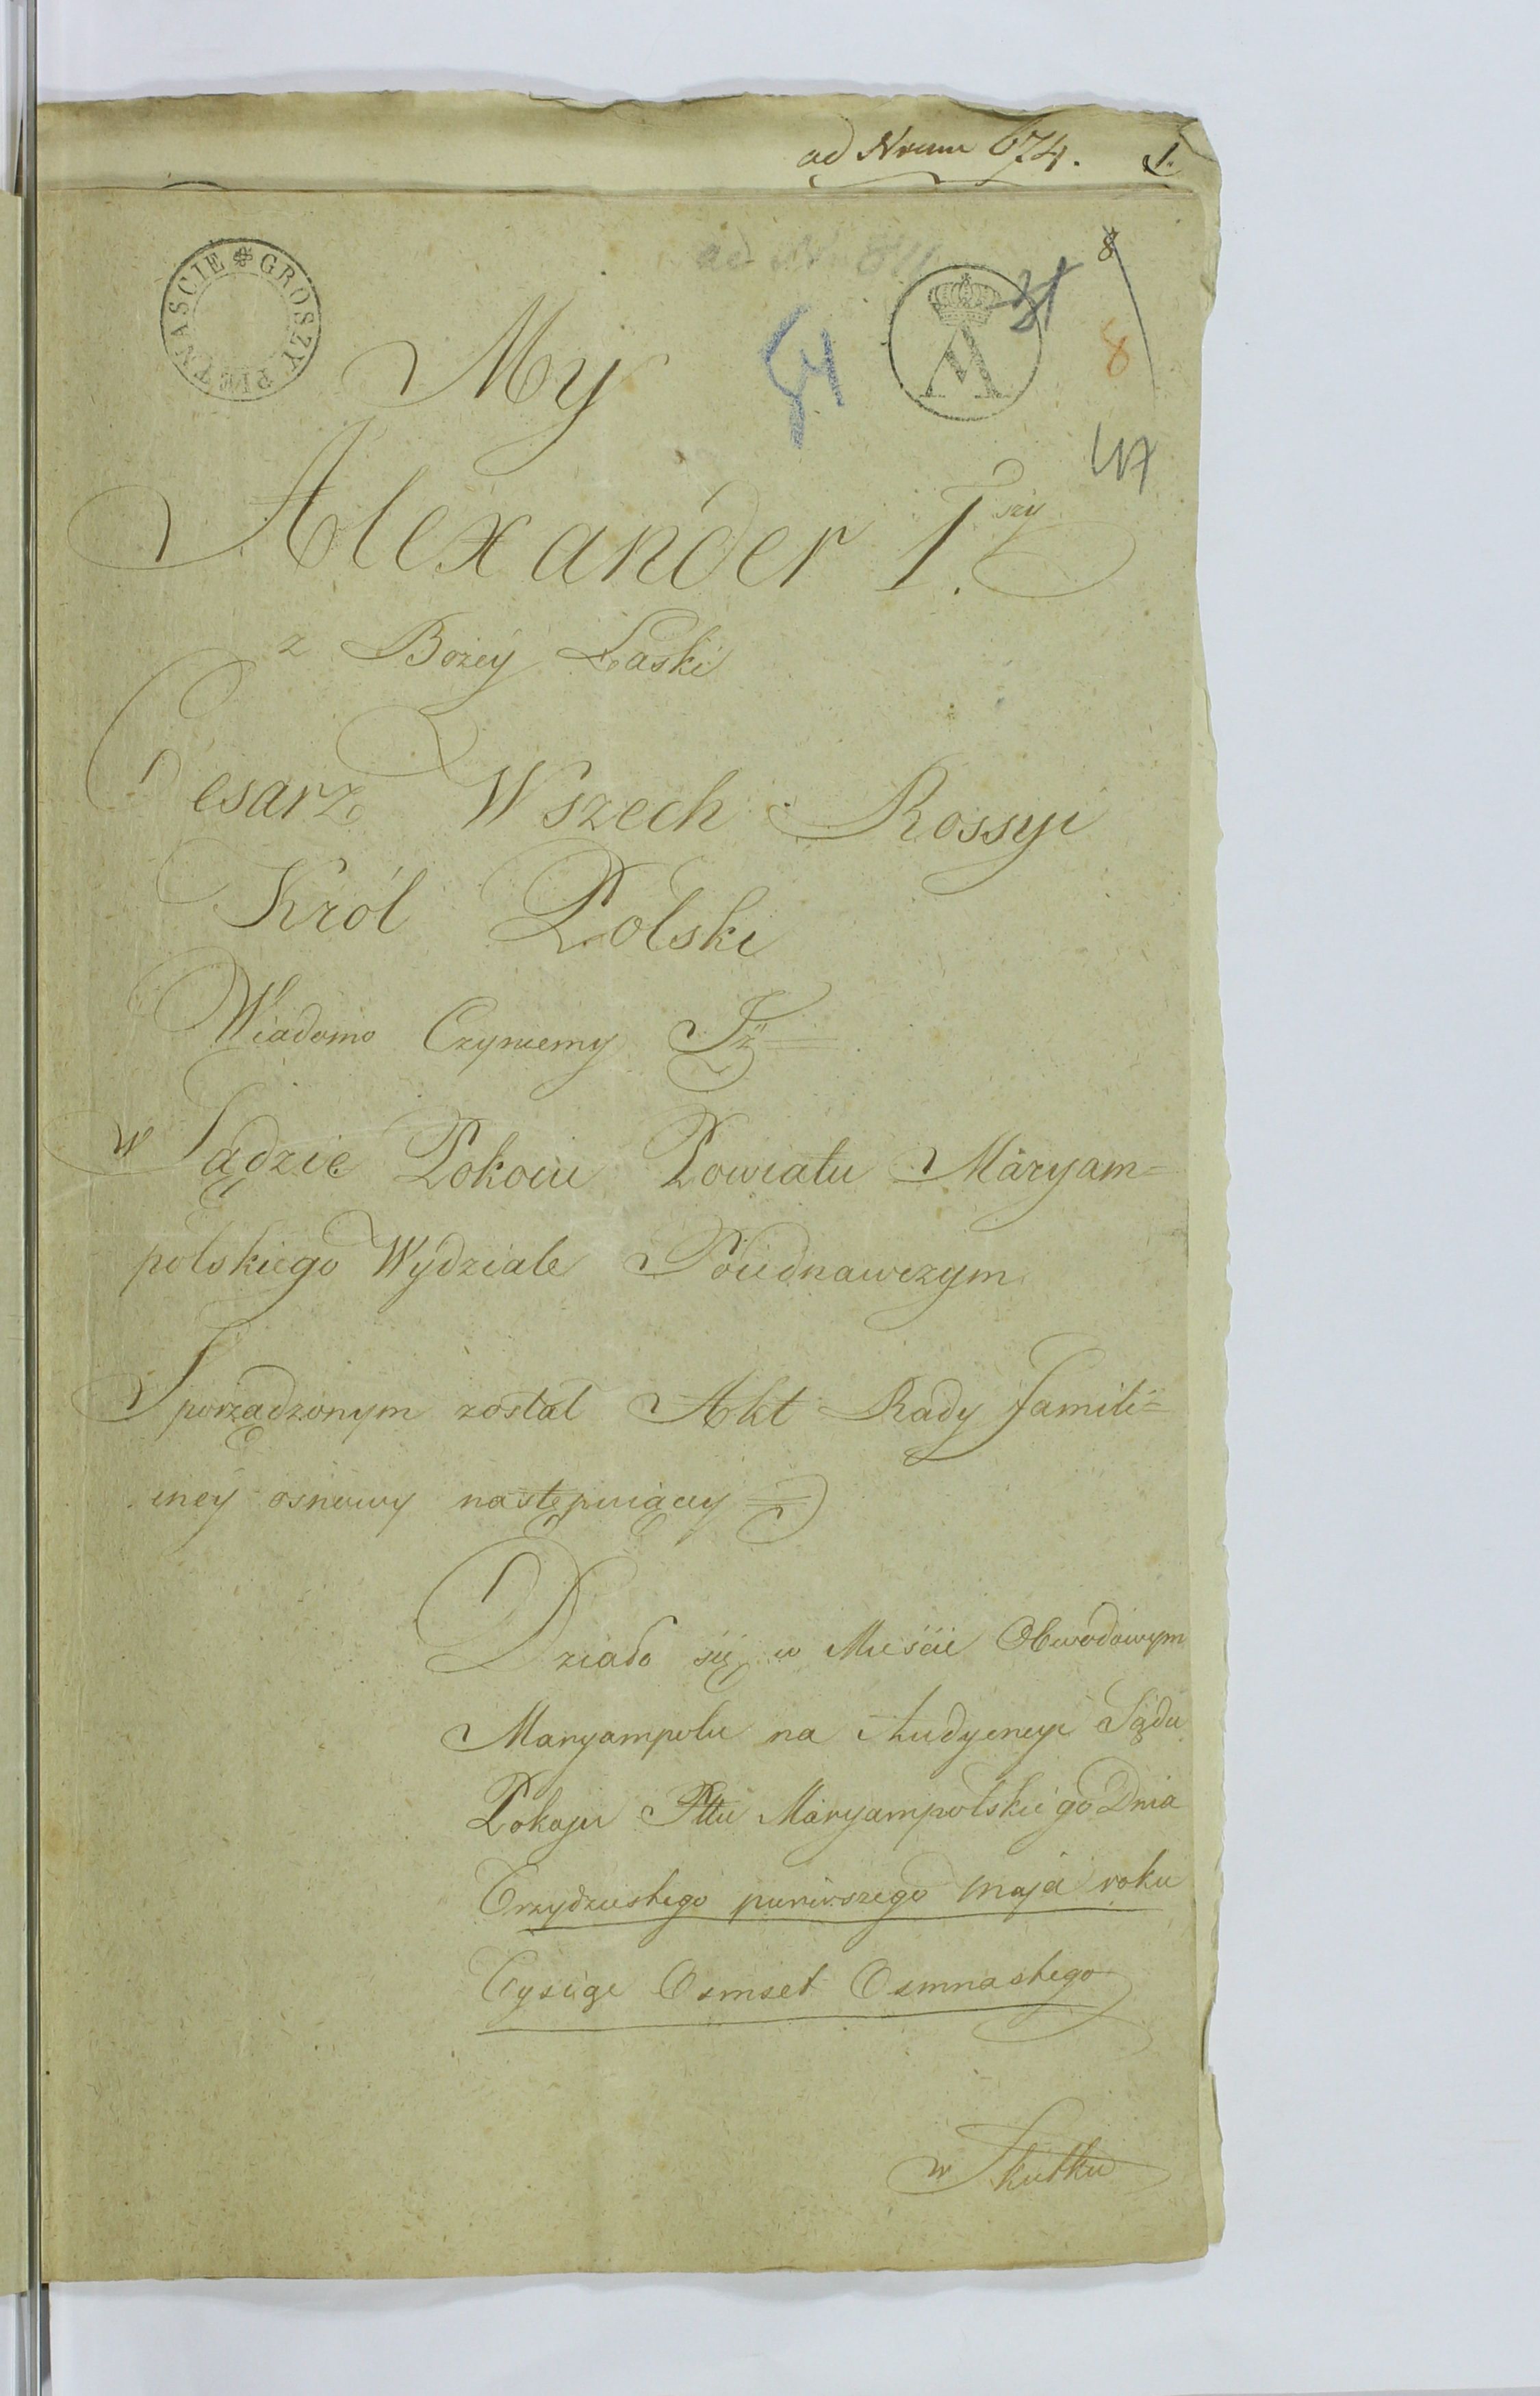 ad Nrum 674. 1.
8
GROSZY PIĘTNAŚCIE
31
8
54
My
47
Alexander 1.szy
z Bożey Łaski
Cesarz Wszech Rossyi
Król Polski
Wiadomo Czyniemy Iż =
w Sądzie Pokoiu Powiatu Maryam=
polskiego Wydziale Poiednawczym
Sporządzonym został Akt Rady famili=
iney osnowy następuiący =
Działo się w Mieście Obwodowym
Maryampolu na Audyencyi Sądu
Pokoju Pttu Maryampolskiego Dnia
Trzydziestego pierwszego maja roku
Tysiąc Osmset Osmnastego
w Skutku